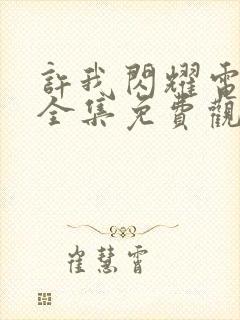 許我閃耀電
全集免費觀
崔慧霄